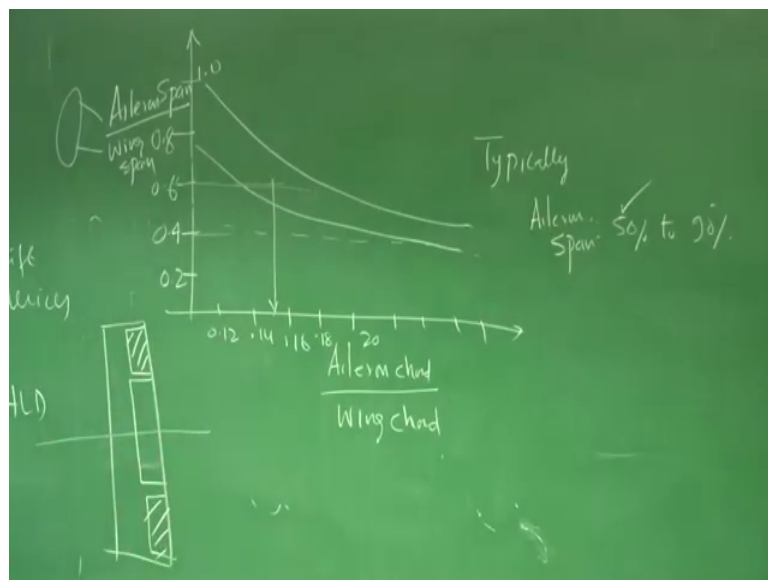 1.0
Aileron Span
Wing
span
0.8
0.6
0.4
0.2
0.12 .14 .16 .18 20
Aileron chord
Wing chord
Typically
Aileron
Span 50% to 90%.
HLD